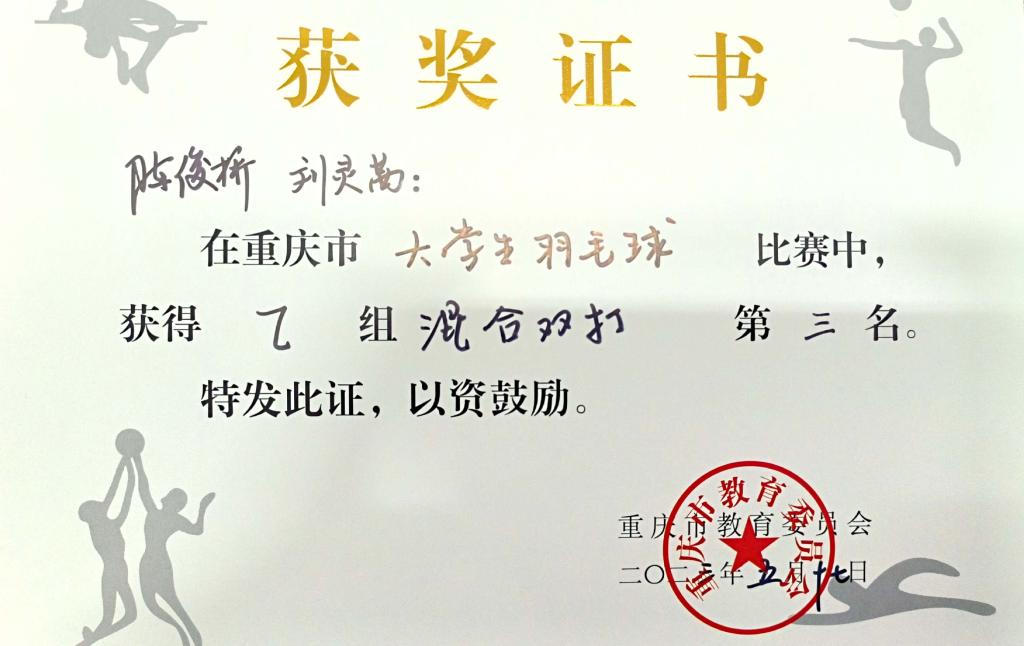 获奖证书
陈俊桥 刘灵茜：
在重庆市 大学生羽毛球 比赛中，
获得 乙 组 混合双打 第 三 名。
特发此证，以资鼓励。
重庆市教育委员会
重庆市教育委员会
二〇二三年五月十七日